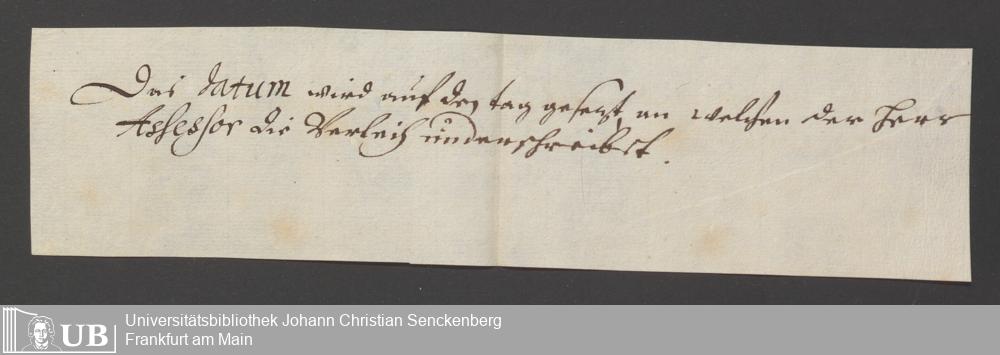 Das datum wird auf den tag gesezt an welchen der Herr
Assessor die Verleih underschreibst.
Universitätsbibliothek Johann Christian Senckenberg
Frankfurt am Main
UB